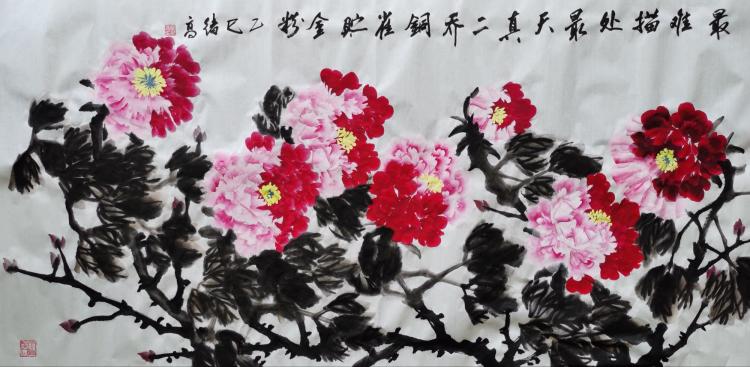 最难描处最天真二乔铜雀贮金粉乙巳绪高